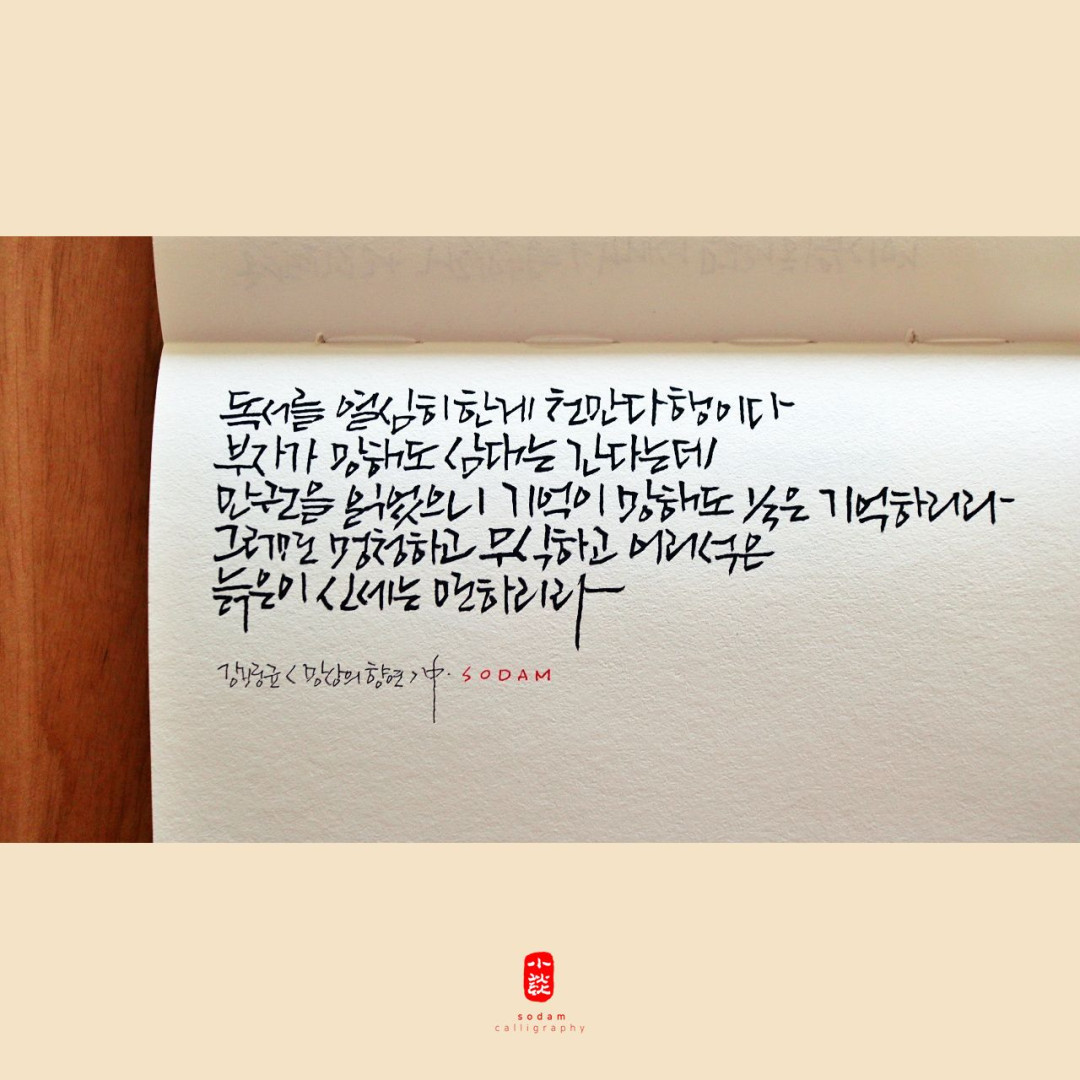 독서를 열심히 한게 천만다행이다
부자가 망해도 삼대는 간다는데
만권을 읽었으니 기억이 망해도 백은 기억하리라
그러면 멍청하고 무식하고 어리석은
늙은이 신세는 면하리라
<망상의 향연>中. SODAM
小談
sodam
calligraphy